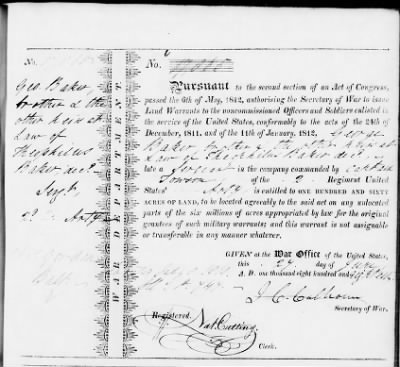 No.
Geo. Baker,
brother & the
other heirs at
Law of
Theophilus
Baker decd.
Sergt.
2d Arty
WAR DEPARTMENT
No.
Pursuant to the second section of an Act of Congress,
passed the 6th of May, 1812, authorising the Secretary of War to issue
Land Warrants to the noncommissioned Officers and Soldiers enlisted in
the service of the United States, conformably to the acts of the 24th
December, 1811, and of the 11th of January, 1812, George
Baker brother & the other heirs at
Law of Theophilus Baker decd.
late a Sergeant in the company commanded by Captain
Towson of the 2 Regiment United
States' Arty is entitled to ONE HUNDRED AND SIXTY
ACRES OF LAND, to be located agreeably to the said act on any unlocated
parts of the six millions of acres appropriated by law for the original
grantees of such military warrants; and this warrant is not assignable
or transferable in any manner whatever.
GIVEN at the War Office of the United States,
this 27 day of
A. D. one thousand eight hundred and
J. C. Calhoun
Secretary of War.
Registered.
Nat. Cutting
Clerk.